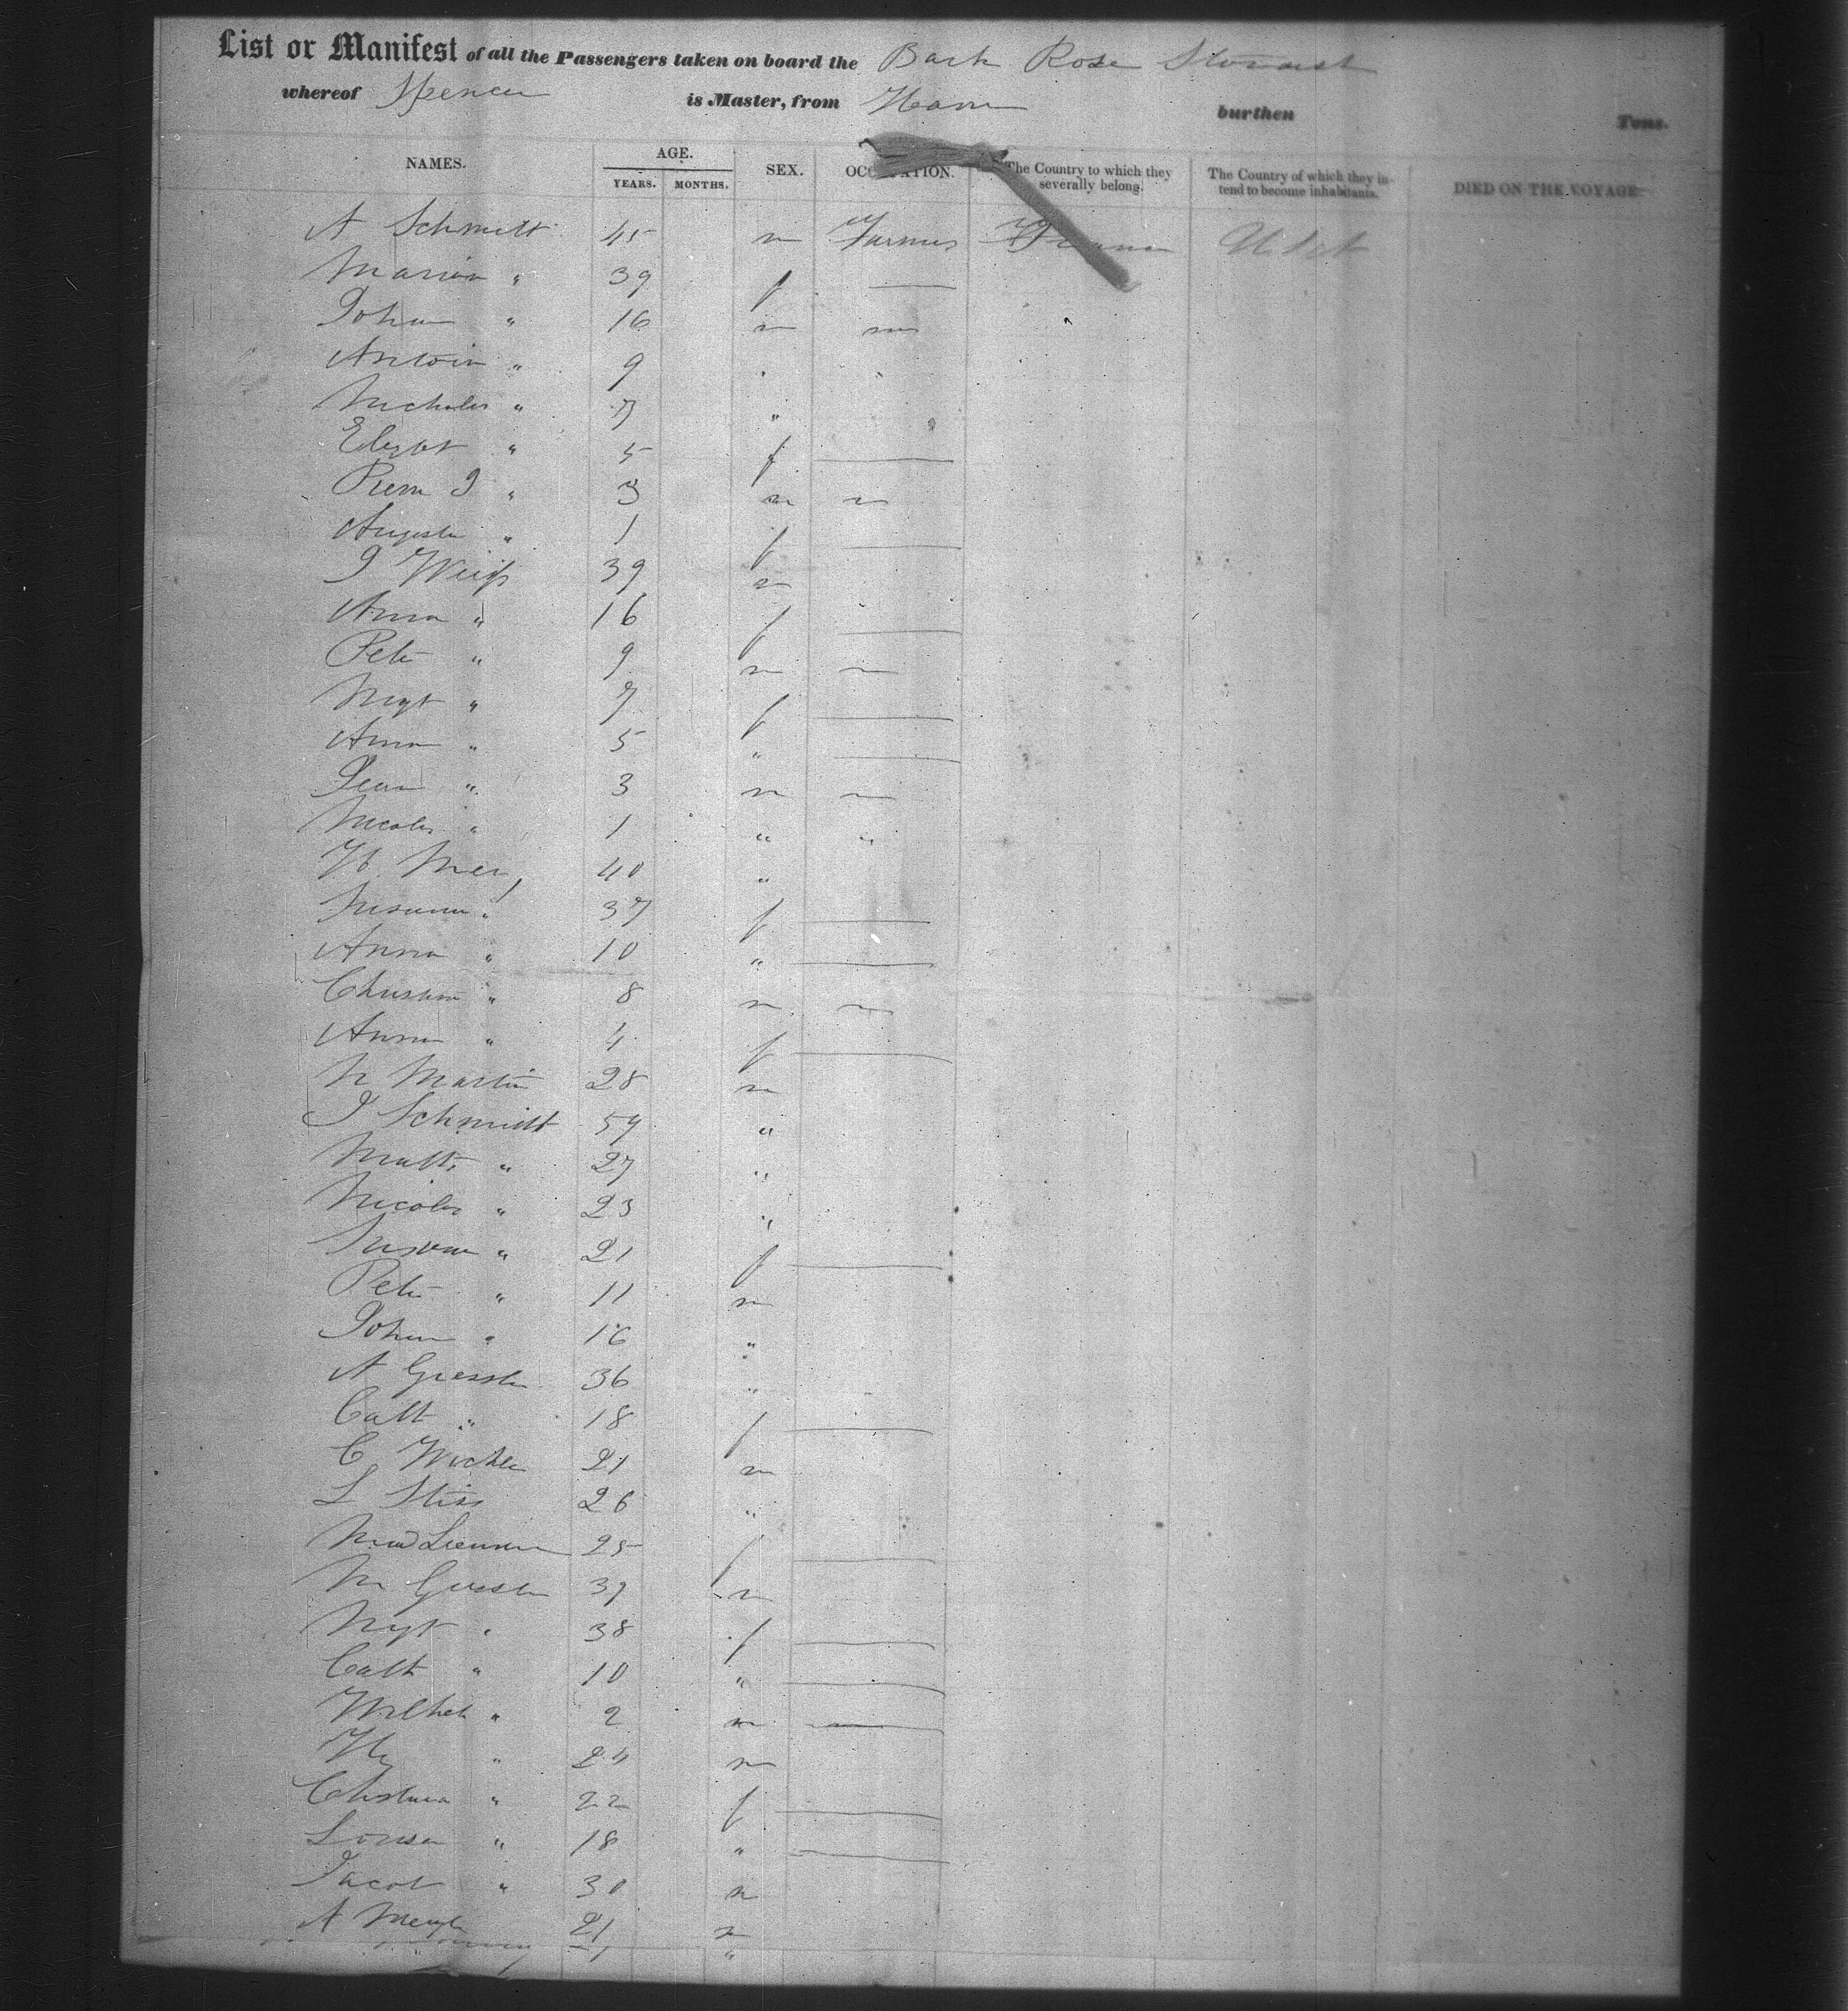 List or Manifest of all the Passengers taken on board the Bark Rose Standish
whereof Spencer is Master, from Havre burthen Tons.
NAMES. AGE. YEARS. MONTHS. SEX. OCCUPATION. The Country to which they severally belong. The Country of which they intend to become inhabitants. DIED ON THE VOYAGE.
A Schmitt 45 m Farmer U Sts
Maria " 39 f —
Johan " 16 m
Antoin " 9 " "
Nicholas " 7 " "
Elizbt " 5 f —
Pierre J " 3 m
Augusta " 1 f —
J Weiss 39 m
Anna " 16 f —
Peter " 9 m
Mgt " 7 f —
Anna " 5 " —
Jean " 3 m
Nicolas " 1 " "
40 "
Susanna " 37 f —
Anna " 10 " —
Christian " 8 m
Anna " 4 f —
N Martin 28 m
J Schmidt 54 "
Matts " 27 "
Nicolas " 23 "
Susanna " 21 f —
Peter " 11 m
Johan " 16 "
A Giessler 36 "
Cath " 18 f —
C 21 m
L Stiss 26 "
25 f —
M Giessler 39 m
Mgt " 38 f —
Cath " 10 " —
Wilhelm " 2 m —
Hy " 24 m
Christina " 22 f —
Louisa " 18 " —
Jacob " 30 m
A 21 m
"